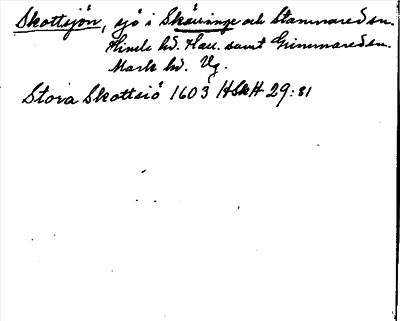 Skottsjön, sjö i Skällinge och Stamnared sn.
Himle hd. Hall. samt Grimmared sn.
Mark hd. Vg.
Stora Skottsiö 1603 HSkH 29:81